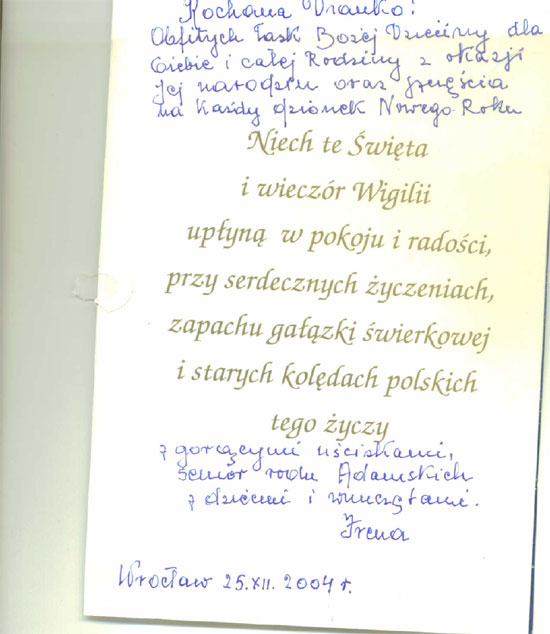 Kochana Dranko!
Obfitych Łask Bożej Dzieciny dla
Ciebie i całej Rodziny z okazji
Jej narodzin oraz szczęścia
na każdy dzionek Nowego Roku
Niech te Święta
i wieczór Wigilii
upłyną w pokoju i radości,
przy serdecznych życzeniach,
zapachu gałązki świerkowej
i starych kolędach polskich
tego życzy
z gorącymi uściskami,
senior rodu Adamskich
z dziećmi i wnuczętami.
Irena
Wrocław 25.XII. 2004 r.